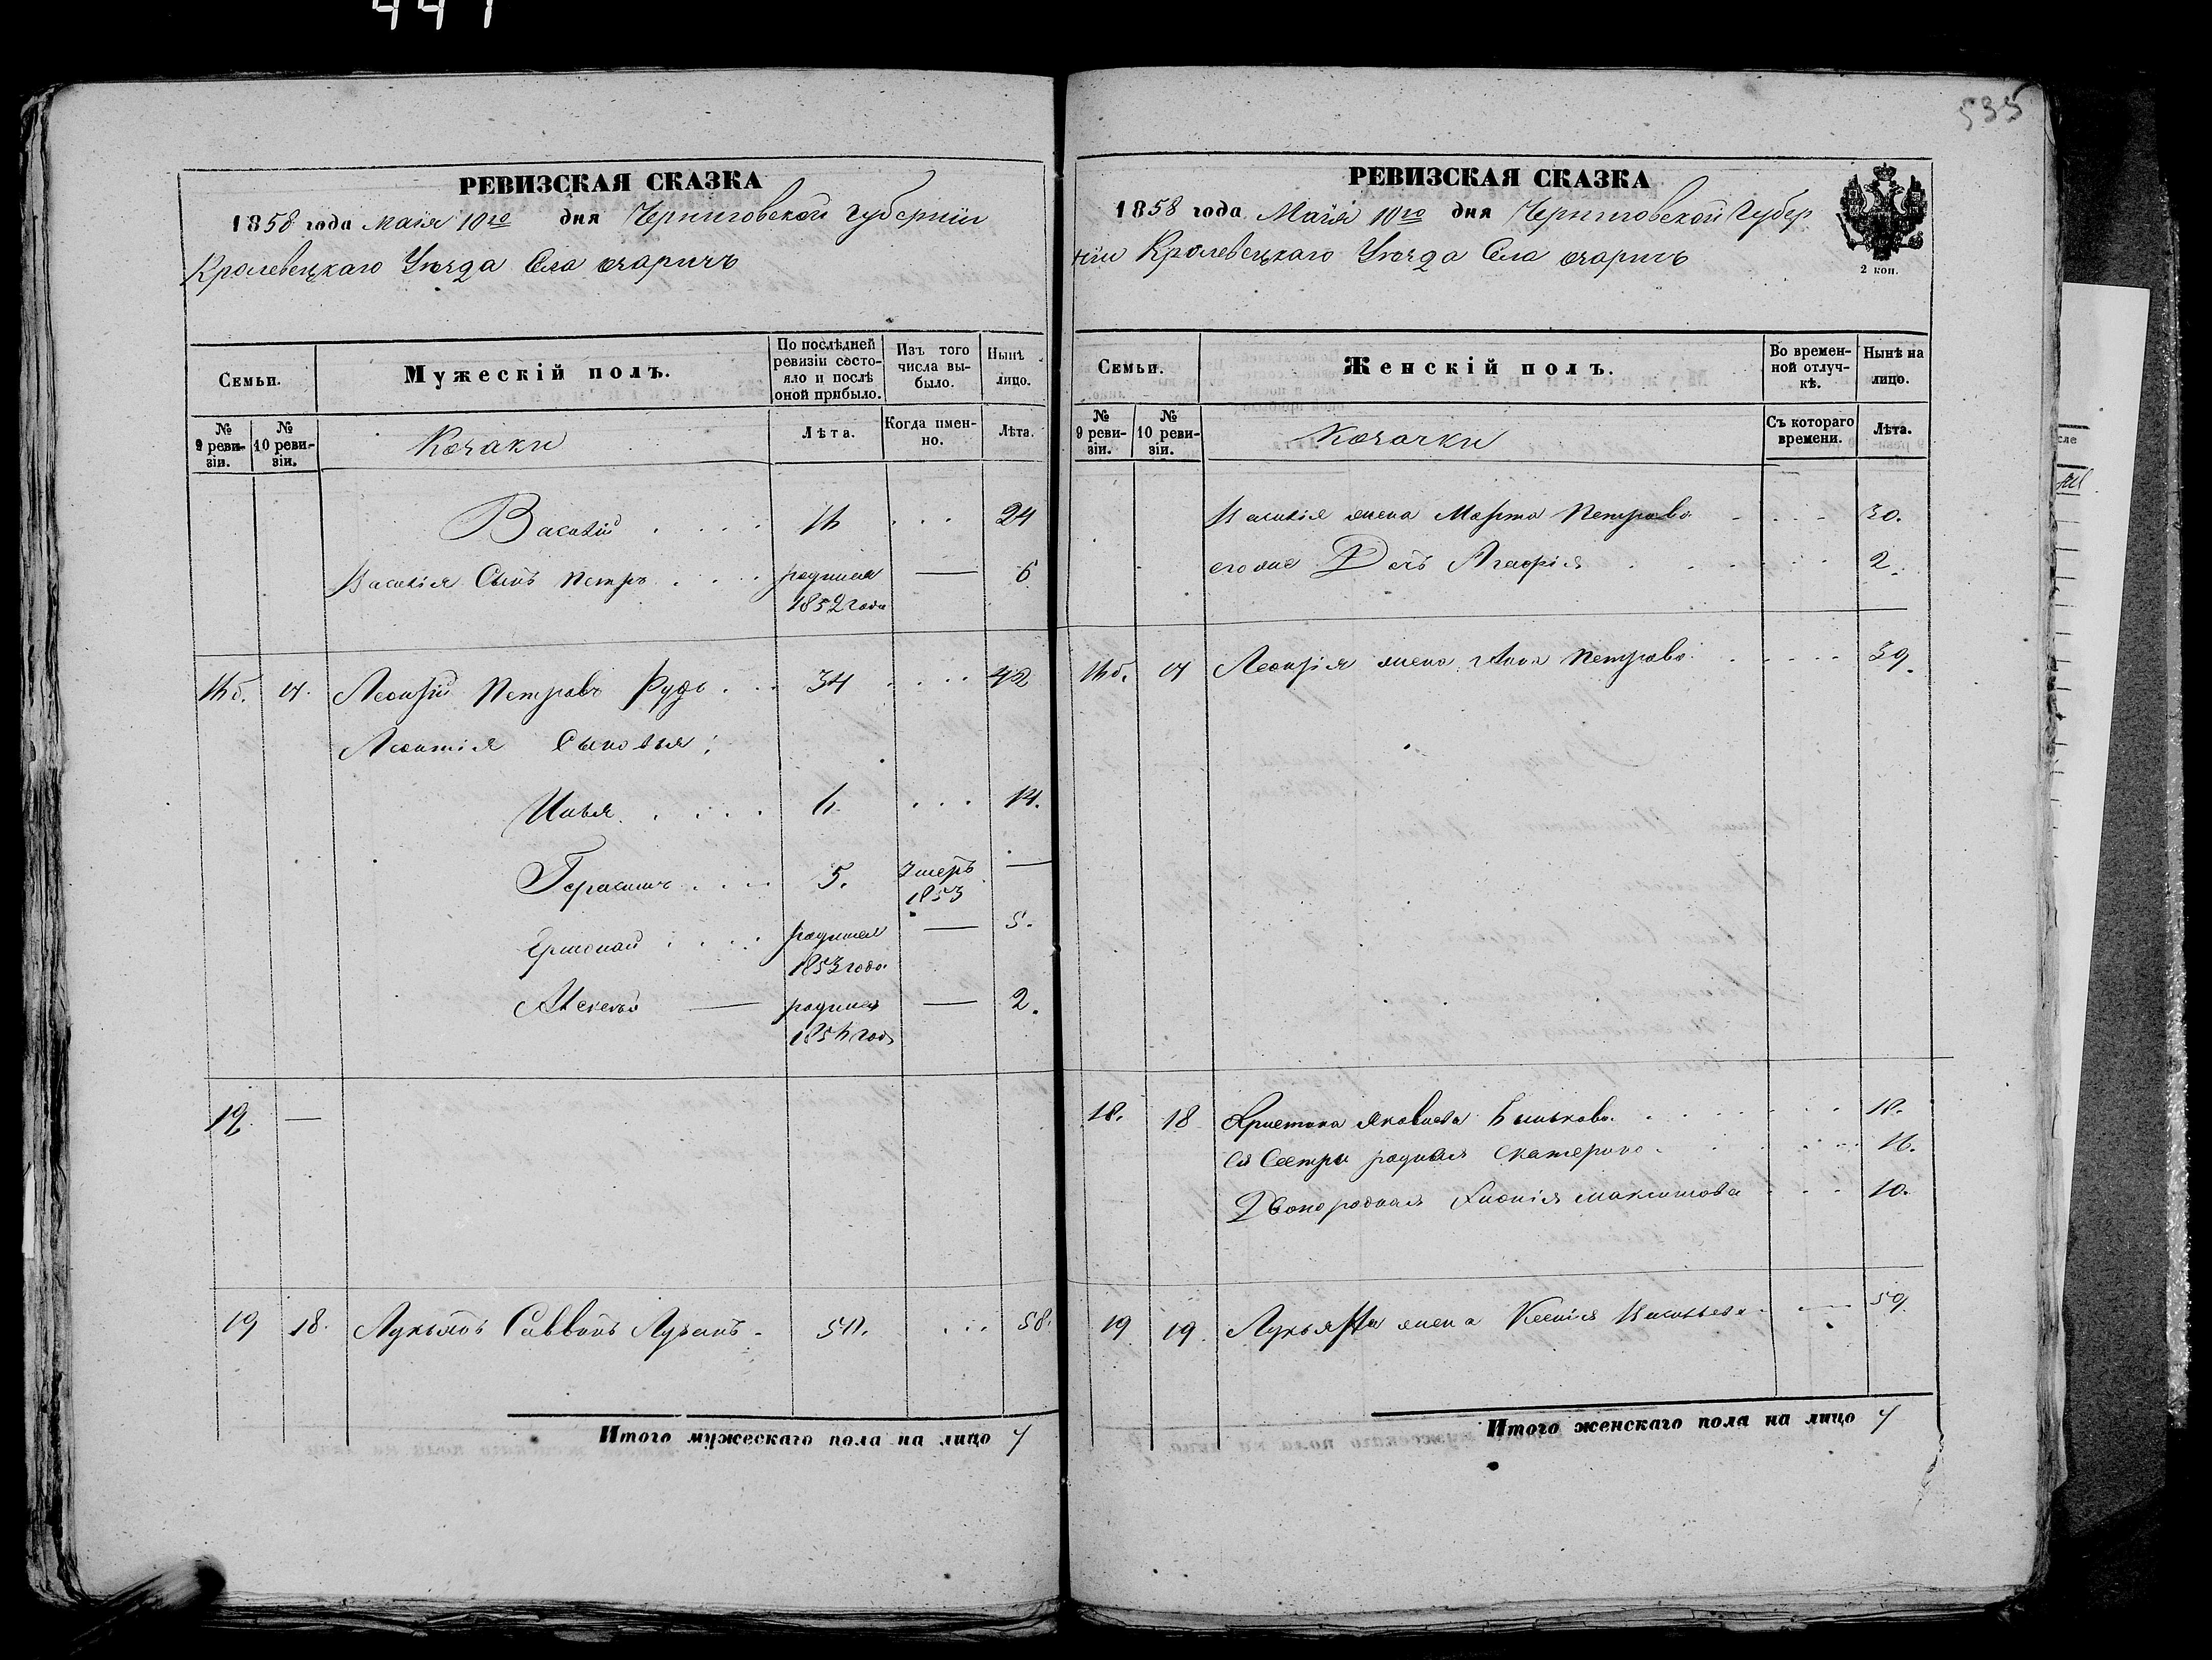 441
РЕВИЗСКАЯ СКАЗКА
1858 года маія 10го дня Черниговской губерніи
Кролевецкаго Уѣзда Села
Семьи.
Мужескій полъ.
По послѣдней ревизіи состояло и послѣ оной прибыло.
Изъ того числа выбыло.
Нынѣ лицо.
№ 9 ревизіи.
№ 10 ревизіи.
Козаки
Лѣта.
Когда именно.
Лѣта.
Василій 16 24
Василія Сынъ Петръ родился 1852 года — 6
Леонтій Петровъ Рудь 34 42
Леонтія Сыновья:
Илья 6 14.
Герасимъ 5. Умеръ 1853 —
Ермолай родился 1853 года — 5.
Алексѣй — родился 1856 года — 2.
19 —
19 18. Лукьянъ Саввинъ 50. 58.
Итого мужескаго пола на лицо 7
535
РЕВИЗСКАЯ СКАЗКА
1858 года Маія 10го дня Черниговской Губер
ніи Кролевецкаго Уѣзда Села
2 коп.
Семьи.
Женскій полъ.
Во временной отлучкѣ.
Нынѣ на лицо.
№ 9 ревизіи.
№ 10 ревизіи.
Козачки
Съ котораго времени.
Лѣта.
Василія жена Марта Петрова 30.
его же Дочь Агафія 2.
Леонтія жена Анна Петрова 39.
18. 18 Христина Яковлева 18.
Ея Сестра родная Екатерина 16.
Двоюродная Максимова 10.
19 19. Лукьяна жена Ксенія Васильева 59.
Итого женскаго пола на лицо 7